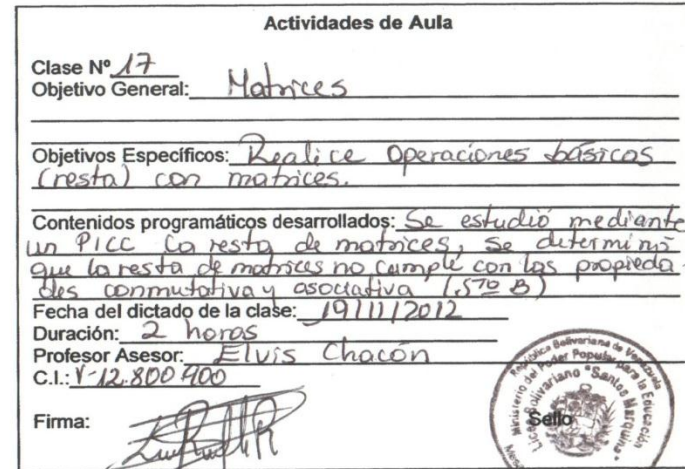 Actividades de Aula
Clase Nº 17
Objetivo General: Matrices
Objetivos Específicos: Realice Operaciones básicas
(resta) con matrices.
Contenidos programáticos desarrollados: Se estudió mediante
un PICC la resta de matrices, se determinó
que la resta de matrices no cumple con las propieda-
des conmutativa y asociativa (5to B)
Fecha del dictado de la clase: 19/11/2012
Duración: 2 horas
Profesor Asesor: Elvis Chacón
C.I.: V-12.800400
Firma:
Sello
República Bolivariana de Venezuela
Ministerio del Poder Popular para la Educación
Liceo Bolivariano "Santos Marquina"